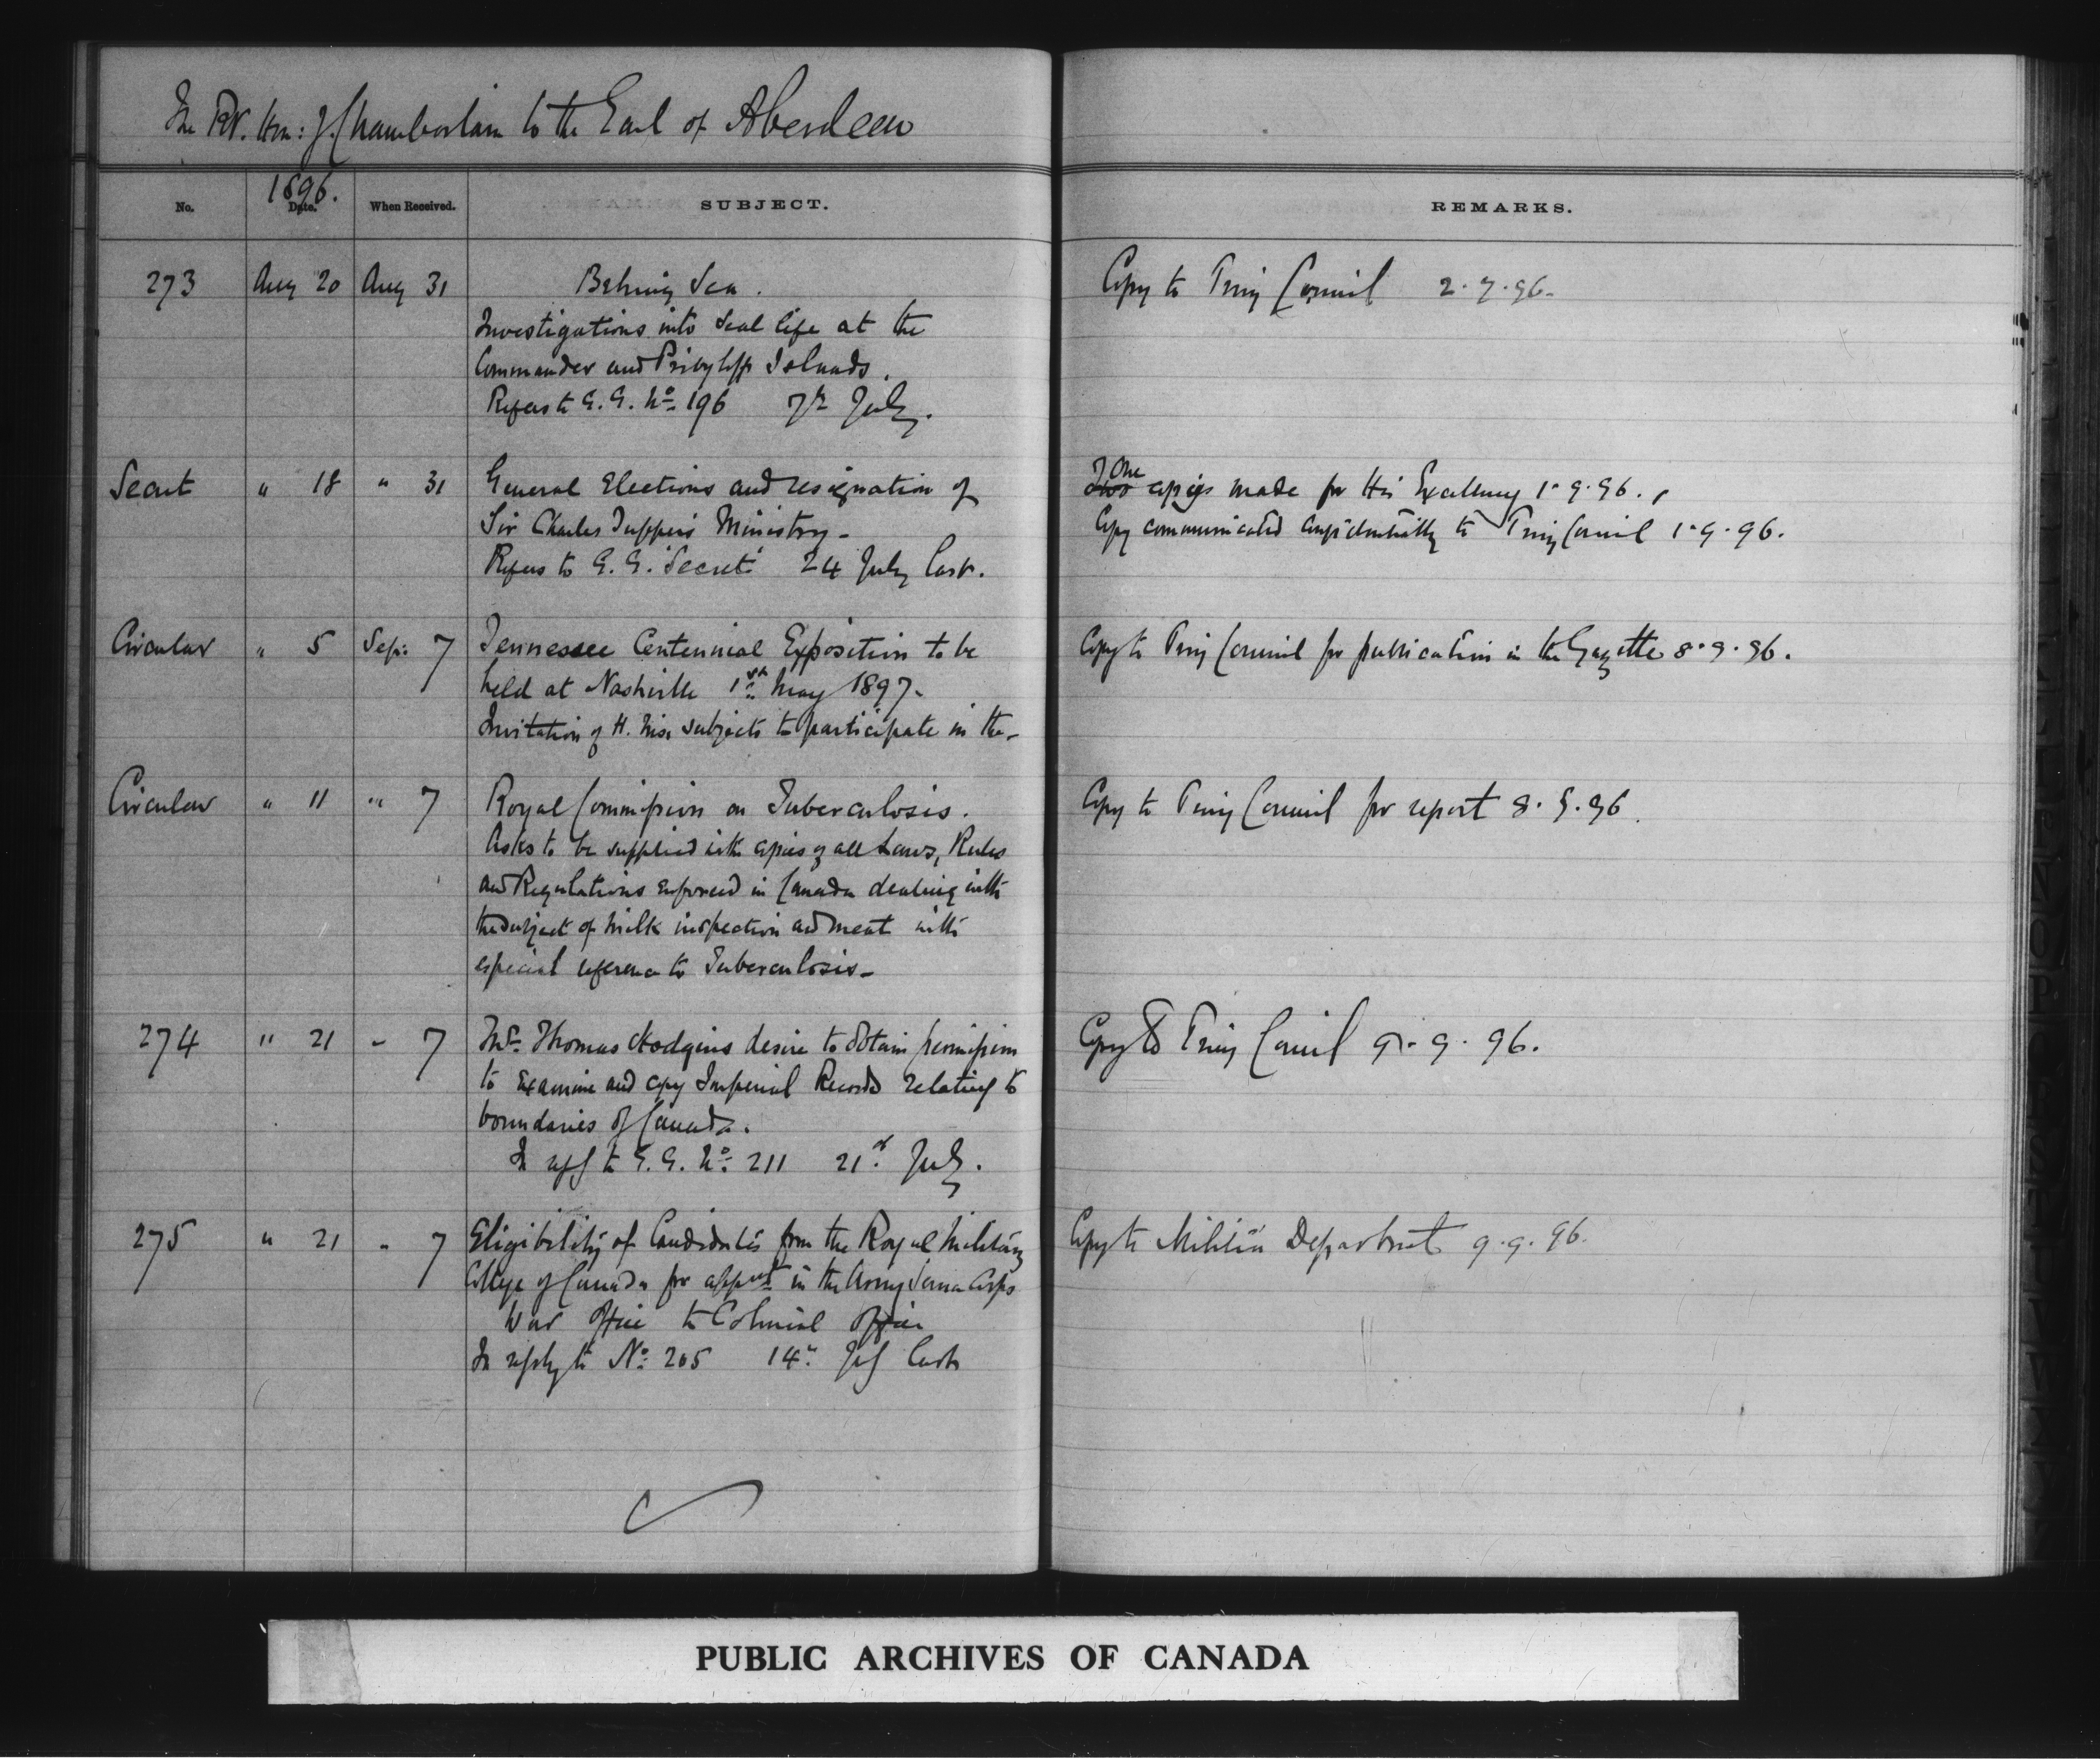 The Rt. Hon: J. Chamberlain to the Earl of Aberdeen
No. 1896. Date. When Received. SUBJECT. REMARKS.
273 Aug 20 Aug 31 Behring Sea. Copy to Privy Council 2.9.96.
Investigations into Seal life at the
Commander and Pribyloff Islands.
Refers to G.G. No. 196 7th July.
Secret " 18 " 31 General Elections and resignation of Two One copies made for His Excellency 1.9.96.
Sir Charles Tupper's Ministry. Copy communicated confidentially to Privy Council 1.9.96.
Refers to G.G. 'Secret' 24 July last.
Circular " 5 Sep. 7 Tennessee Centennial Exposition to be Copy to Privy Council for publication in the Gazette 8.9.96.
held at Nashville 1st May 1897.
Invitation of H. M's subjects to participate in the
Circular " 11 " 7 Royal Commission on Tuberculosis. Copy to Privy Council for report 8.9.96.
Asks to be supplied with copies of all Laws, Rules
and Regulations enforced in Canada dealing with
the subject of milk inspection and meat with
especial reference to Tuberculosis
274 " 21 " 7 Mr. Thomas Hodgins desire to obtain permission Copy to Privy Council 9.9.96.
to examine and copy Imperial Records relating to
boundaries of Canada.
In reply to G.G. No. 211 21st July.
275 " 21 " 7 Eligibility of Candidates from the Royal Military Copy to Militia Department 9.9.96.
College of Canada for appmt in the Army Service Corps
War Office to Colonial Office
In reply to No. 205 14th July last
PUBLIC ARCHIVES OF CANADA